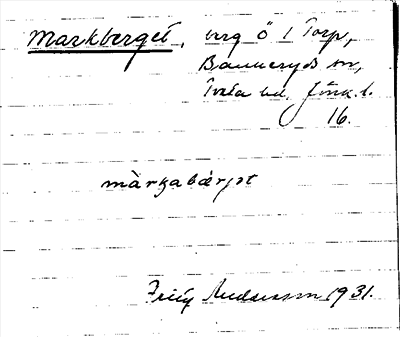 Markberget, berg Ö i Torp,
Bankeryds sn,
Tveta hd. Jönk. l.
16.
màrkabærjət
Fritz Andersson 1931.